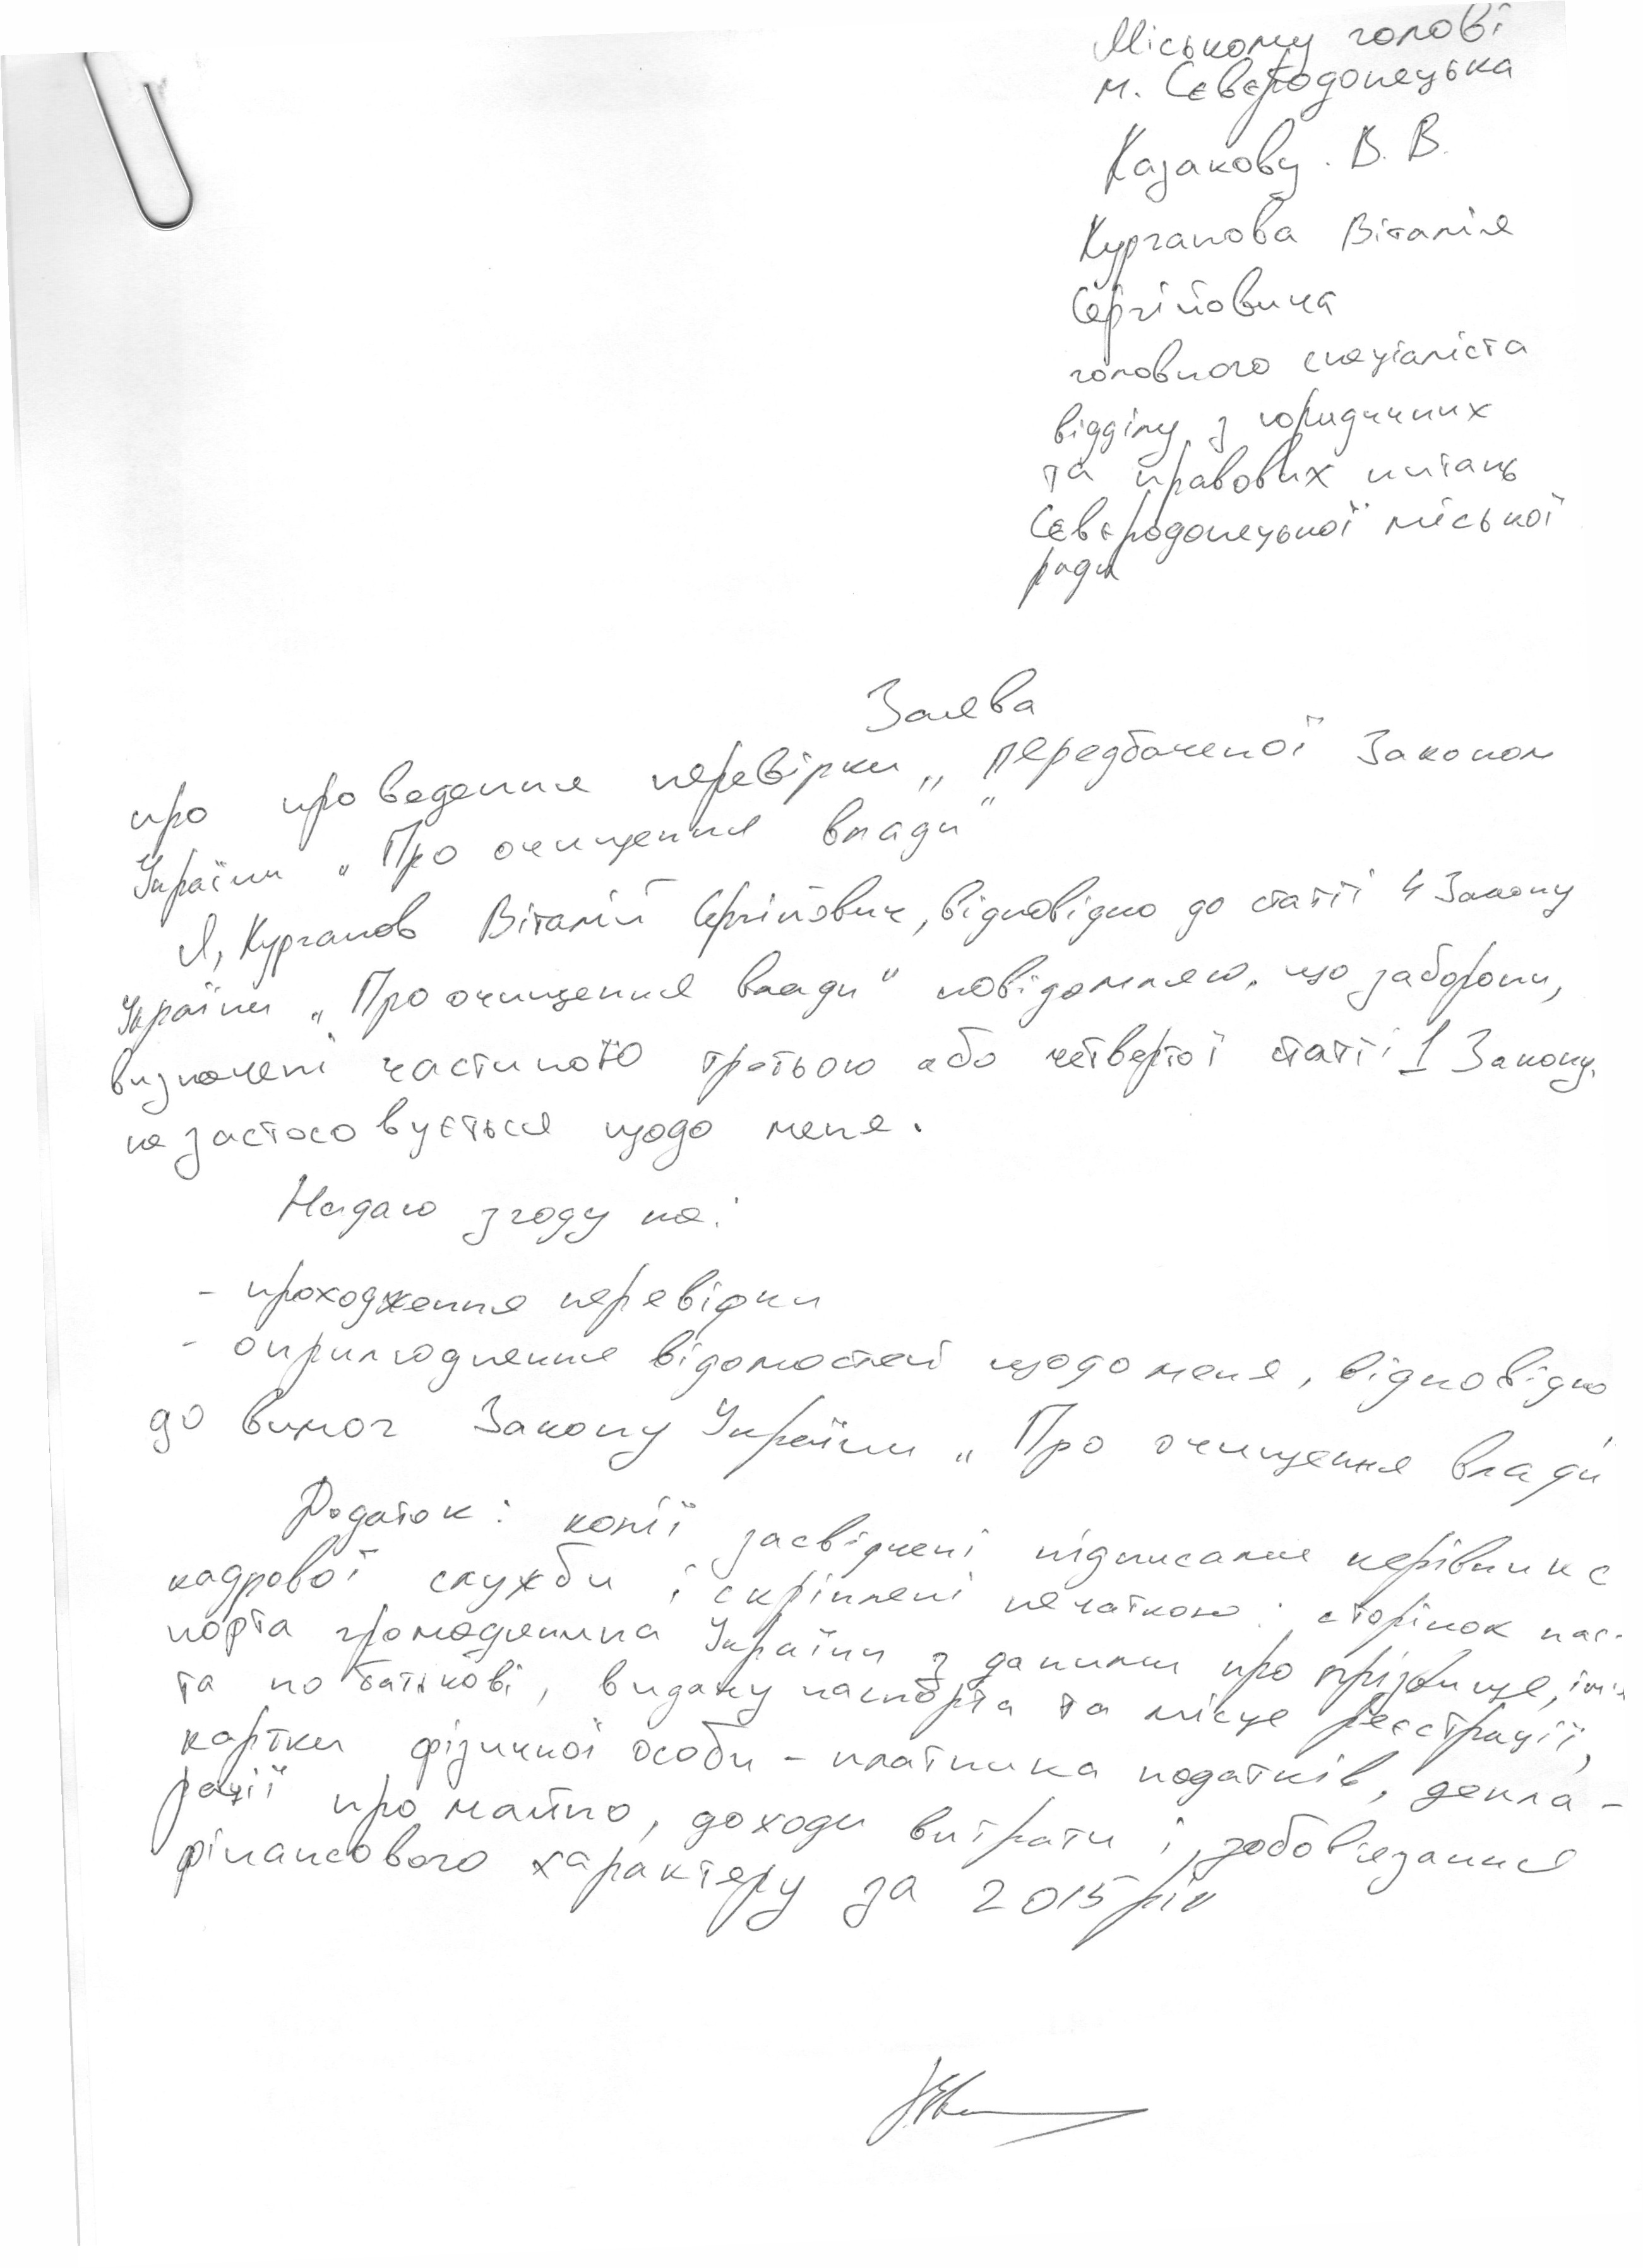 Міському голові
м. Сєвєродонецька
Казакову. В. В.
Курганова Віталія
Сергійовича
головного спеціаліста
відділу з юридичних
та правових питань
Сєвєродонецької міської
ради
Заява
про проведення перевірки „ передбаченої Законом
України „ Про очищення влади"
Я, Курганов Віталій Сергійович, відповідно до статті 4 Закону
України „ Про очищення влади" повідомляю. що заборони,
визначені частиною третьою або четвертої статті 1 Закону.
не застосовується щодо мене.
Надаю згоду на:
- проходження перевірки
- оприлюднення відомостей щодо мене, відповідно
до вимог Закону України „ Про очищення влади
Додаток: копії засвідчені підписами керівника
кадрової служби і скріплені печаткою: сторінок пас-
порта громадянина України з даними про прізвище, ім'я
та по батькові, видачу паспорта та місце реєстрації,
картки фізичної особи - платника податків, декла-
рації про майно, доходи витрати і зобов'язання
фінансового характеру за 2015 рік